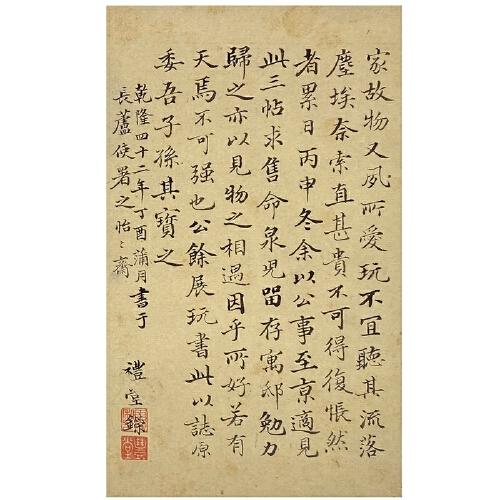 家故物又夙所愛玩不冝聽其流落
塵埃奈索直甚貴不可得復悵然
者累日丙申冬余以公事至京適見
此三帖求售命泉児留存寓邸勉力
歸之亦以見物之相遇因乎所好若有
天焉不可强也公餘展玩書此以誌原
委吾子孫其寶之
乾隆四十二年丁酉蒲月書于
長蘆使署之怡〻齋
禮堂